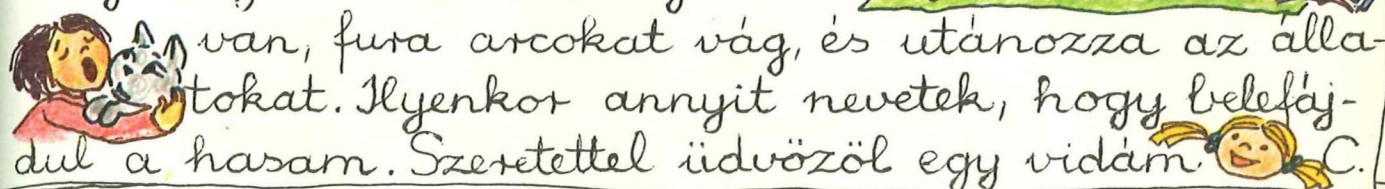 van, fura arcokat vág, és utánozza az álla-
tokat. Ilyenkor annyit nevetek, hogy belefáj-
dul a hasam. Szeretettel üdvözöl egy vidám C.